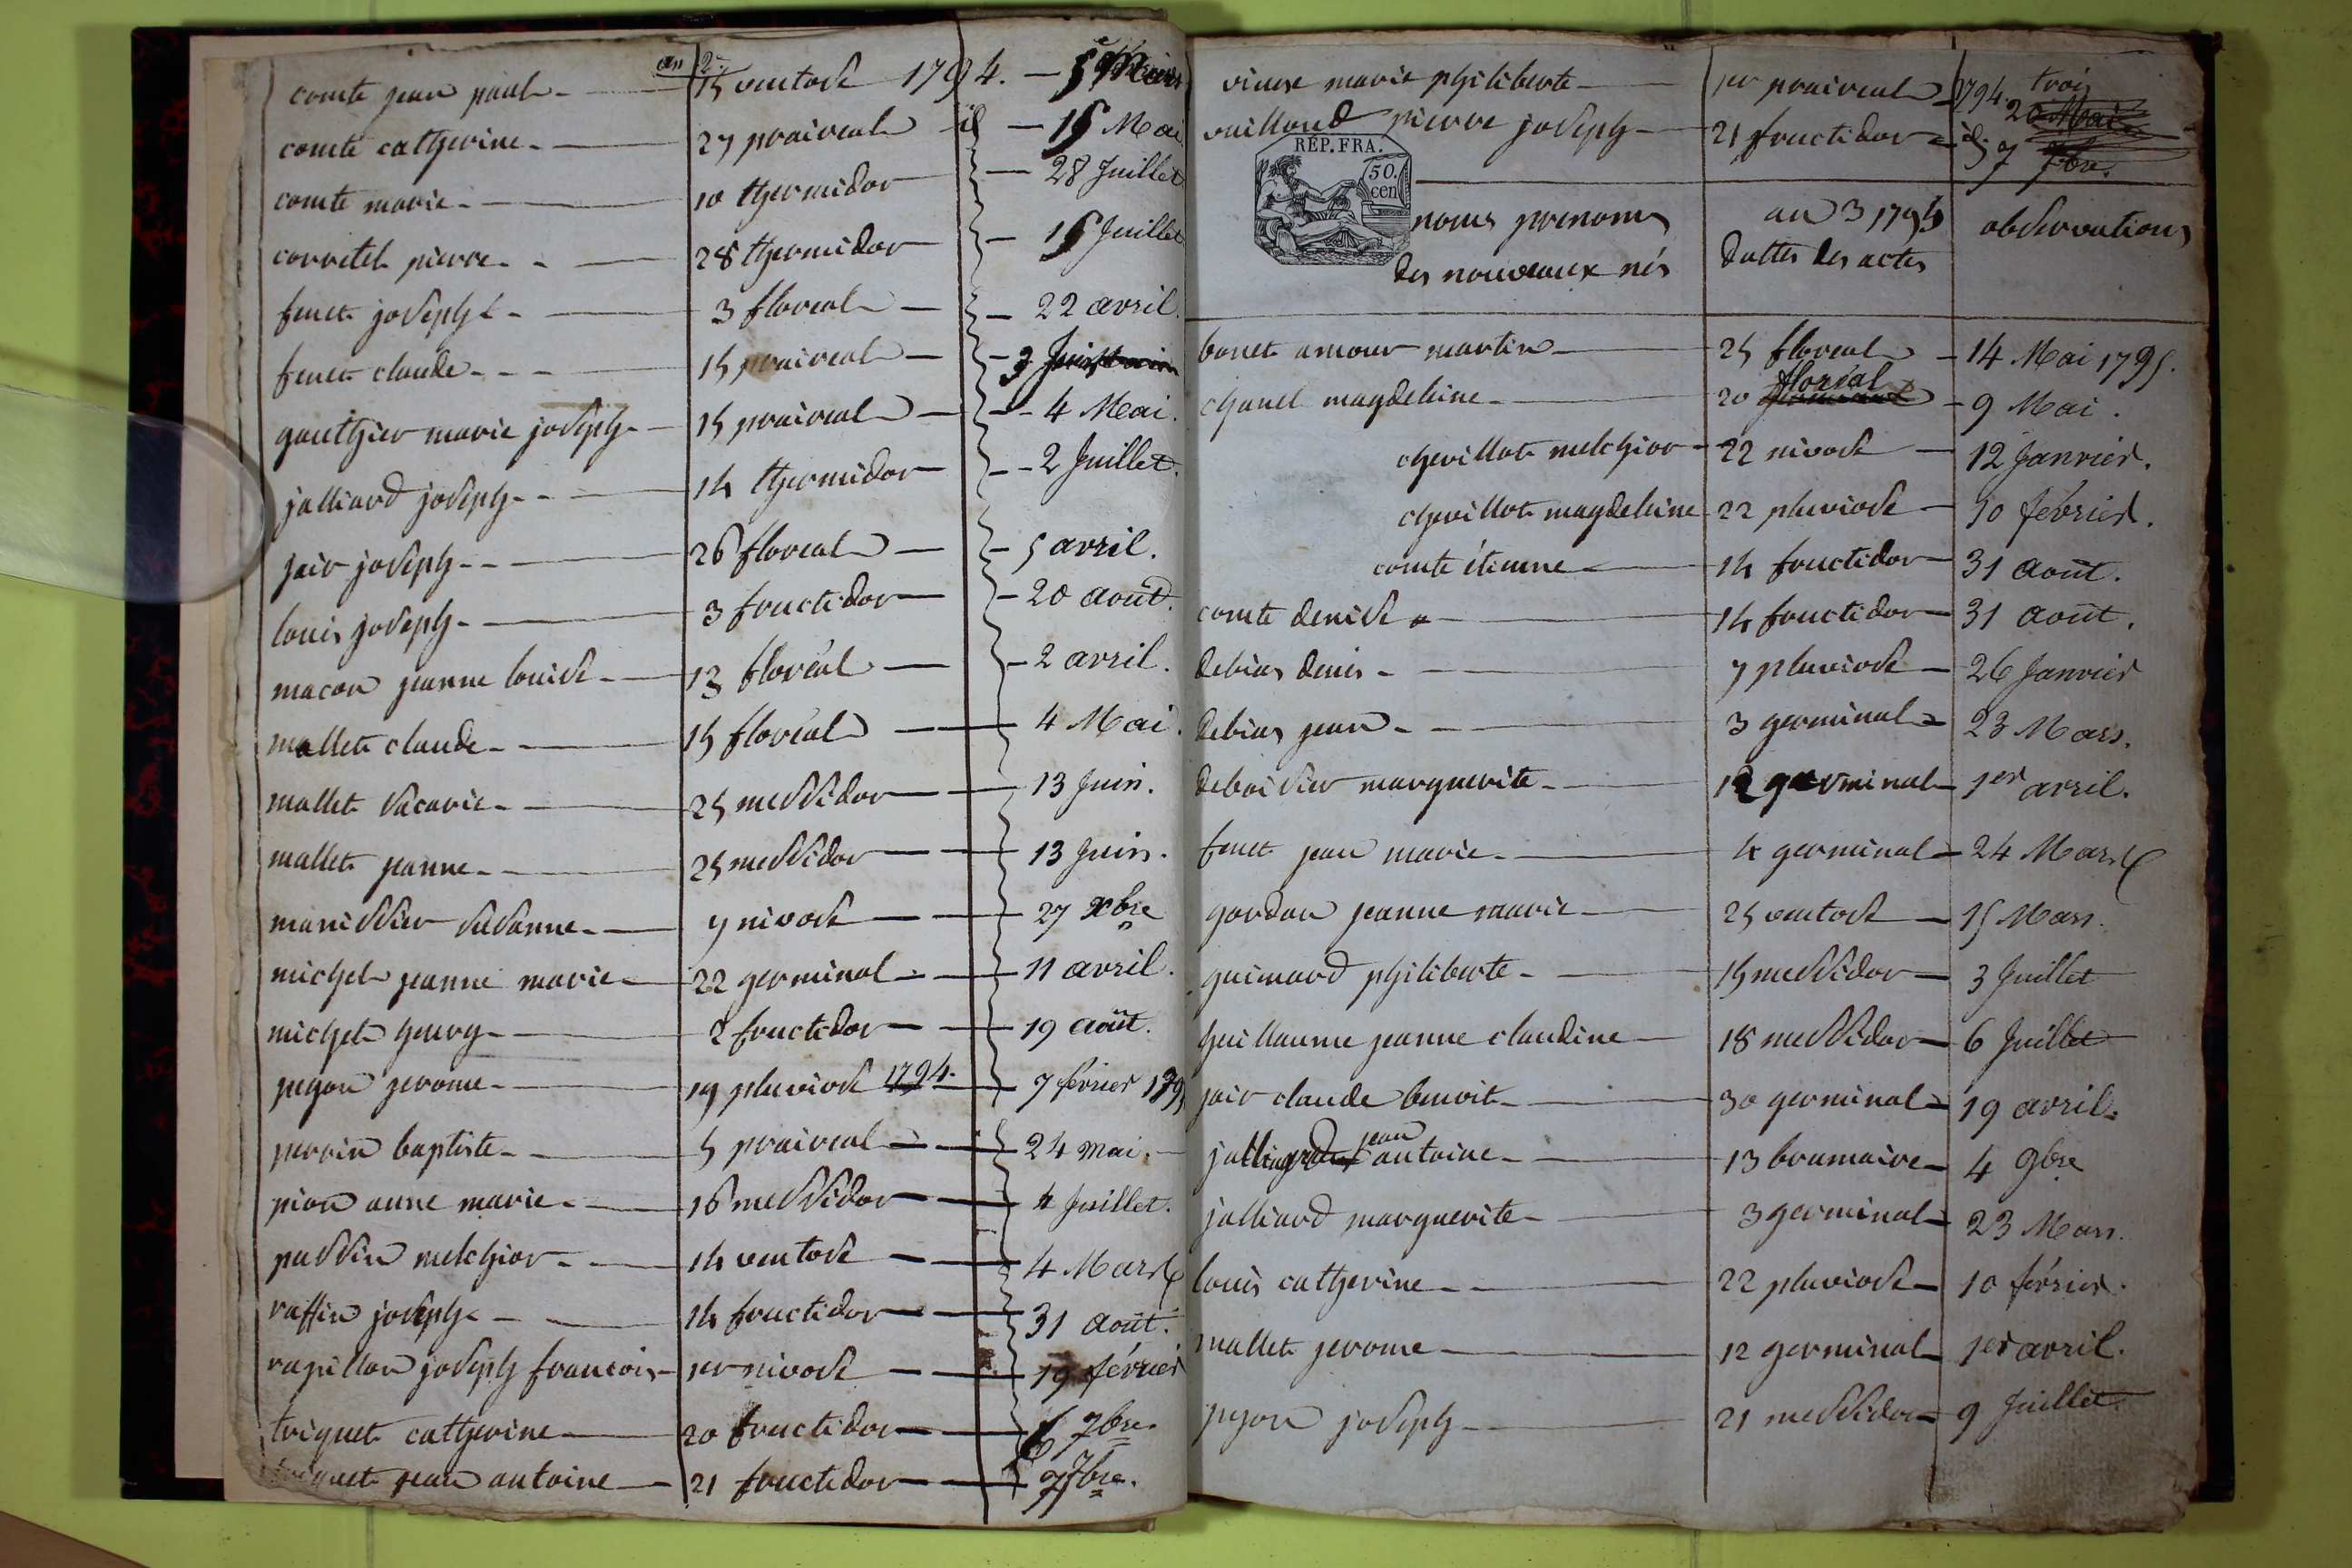 an 2.
comte jean paul - 15 ventose 1794. - 5 Mars
comte catherine - 27 praireal id - 15 Mai
comte marie - 10 thermidor - 28 Juillet
corretel pierre - 28 thermidor - 15 Juillet
fenet joseph - 3 floreal - 22 avril.
fenet claude - 15 praireal - 3 Juin
gauthier marie joseph - 15 praireal - 4 Mai.
jalliard joseph - 14 thermidor - 2 Juillet.
jair joseph - 26 floreal - 5 avril.
louis joseph - 3 fructidor - 20 août.
macon jeanne louise - 13 floréal - 2 avril.
mallet claude - 15 floréal - 4 Mai.
mallet - 25 messidor - 13 Juin.
mallet jeanne - 25 messidor - 13 Juin.
manissier susanne - 7 nivose - 27 Xbre
michel jeanne marie - 22 germinal - 11 avril.
michel henry - 2 fructidor - 19 août.
pegon jerome - 19 pluviose 1794. - 7 février 179
perrin baptiste - 5 praireal - 24 mai.
pion anne marie - 16 messidor - 4 Juillet.
pussin melchior - 14 ventose - 4 Mars
raffin joseph - 14 fructidor - 31 août.
rapillon joseph francois - 1er nivose - 19 février
triquet catherine - 20 fructidor - 6 7bre.
triquet jean antoine - 21 fructidor - 7 7bre.
marie philiberte - 1er praireal - 1794. trois
20 Mai
vuillard pierre joseph - 21 fructidor - id. 7 7bre.
RÉP. FRA.
50.
cen
noms prenoms
des nouveaux nés
an 3 1795
dattes des actes
observations
bonet amour martin - 25 floreal - 14 Mai 1795.
chanel magdeleine - 20 floréal - 9 Mai.
chevillot melchior - 22 nivose - 12 Janvier.
chevillot magdeleine 22 pluviose - 10 février.
comte étienne - 14 fructidor - 31 août.
comte denise - 14 fructidor - 31 août.
debias denis - 7 pluviose - 26 Janvier
debias jean - 3 germinal - 23 Mars.
deboissier marguerite - 12 germinal - 1er avril.
fenet jean marie - 4 germinal - 24 Mars
gordon jeanne marie - 25 ventose - 15 Mars.
guimard philiberte - 15 messidor - 3 Juillet
guillaume jeanne claudine - 18 messidor - 6 Juillet
jair claude benoit - 30 germinal - 19 avril.
jalliard jean antoine - 13 brumaire - 4 9bre
jalliard marguerite - 3 germinal - 23 Mars.
louis catherine - 22 pluviose - 10 février.
mallet jerome - 12 germinal - 1er avril.
pegon joseph - 21 messidor - 9 Juillet